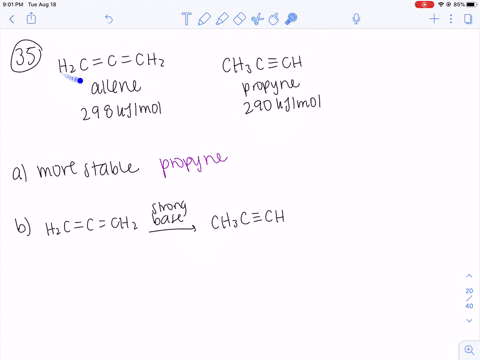 9:01 PM Tue Aug 18
85%
35
H₂C=C=CH₂
allene
298 kJ/mol
CH₃C≡CH
propyne
290 kJ/mol
a) more stable propyne
b) H₂C=C=CH₂ strong base → CH₃C≡CH
20
/
40